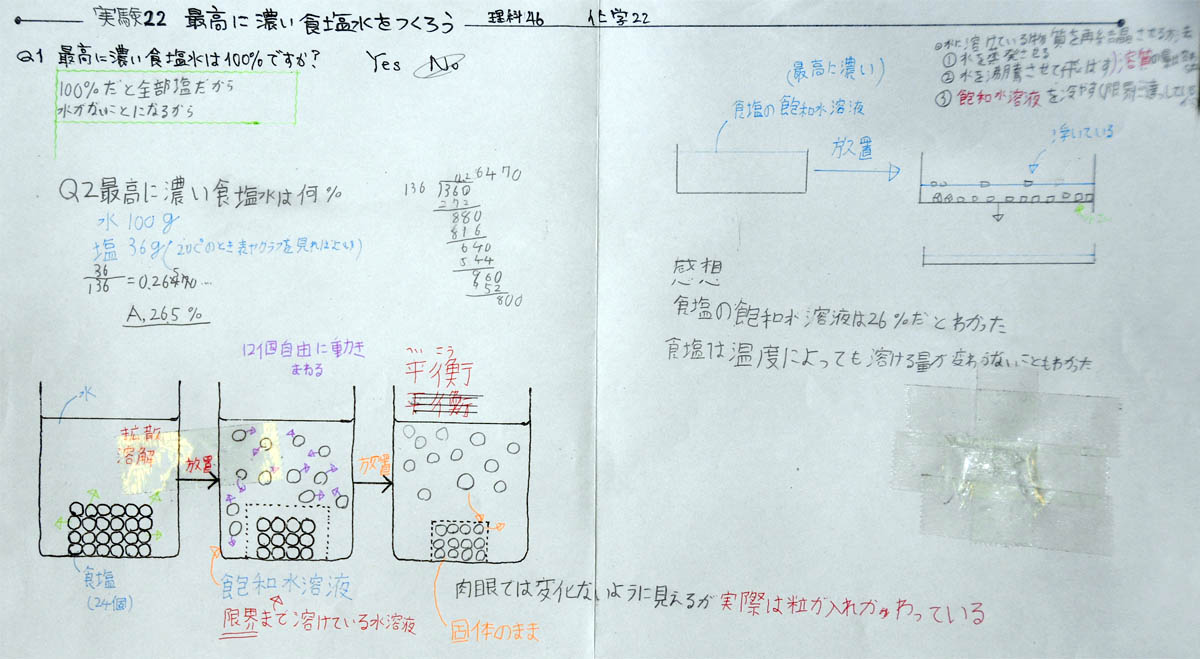 実験22 最高に濃い食塩水をつくろう 理科46 化学22
Q1 最高に濃い食塩水は100%ですか? Yes No
100%だと全部塩だから
水がないことになるから
Q2 最高に濃い食塩水は何%
水 100g
塩 36g
36/136 = 0.26470…
A, 26.5%
136 360
272
880
816
640
544
960
952
800
水
拡散
溶解
放置
食塩
(24個)
12個自由に動き
まわる
飽和水溶液
限界まで溶けている水溶液
放置
こう
平衡
平衡
固体のまま
肉眼では変化ないように見えるが実際は粒が入れかわっている
①水を蒸発させる
②水を沸騰させて飛ばす
③飽和水溶液を冷やす
(最高に濃い)
食塩の飽和水溶液
放置
浮いている
感想
食塩の飽和水溶液は26%だとわかった
食塩は温度によっても溶ける量が変わらないこともわかった